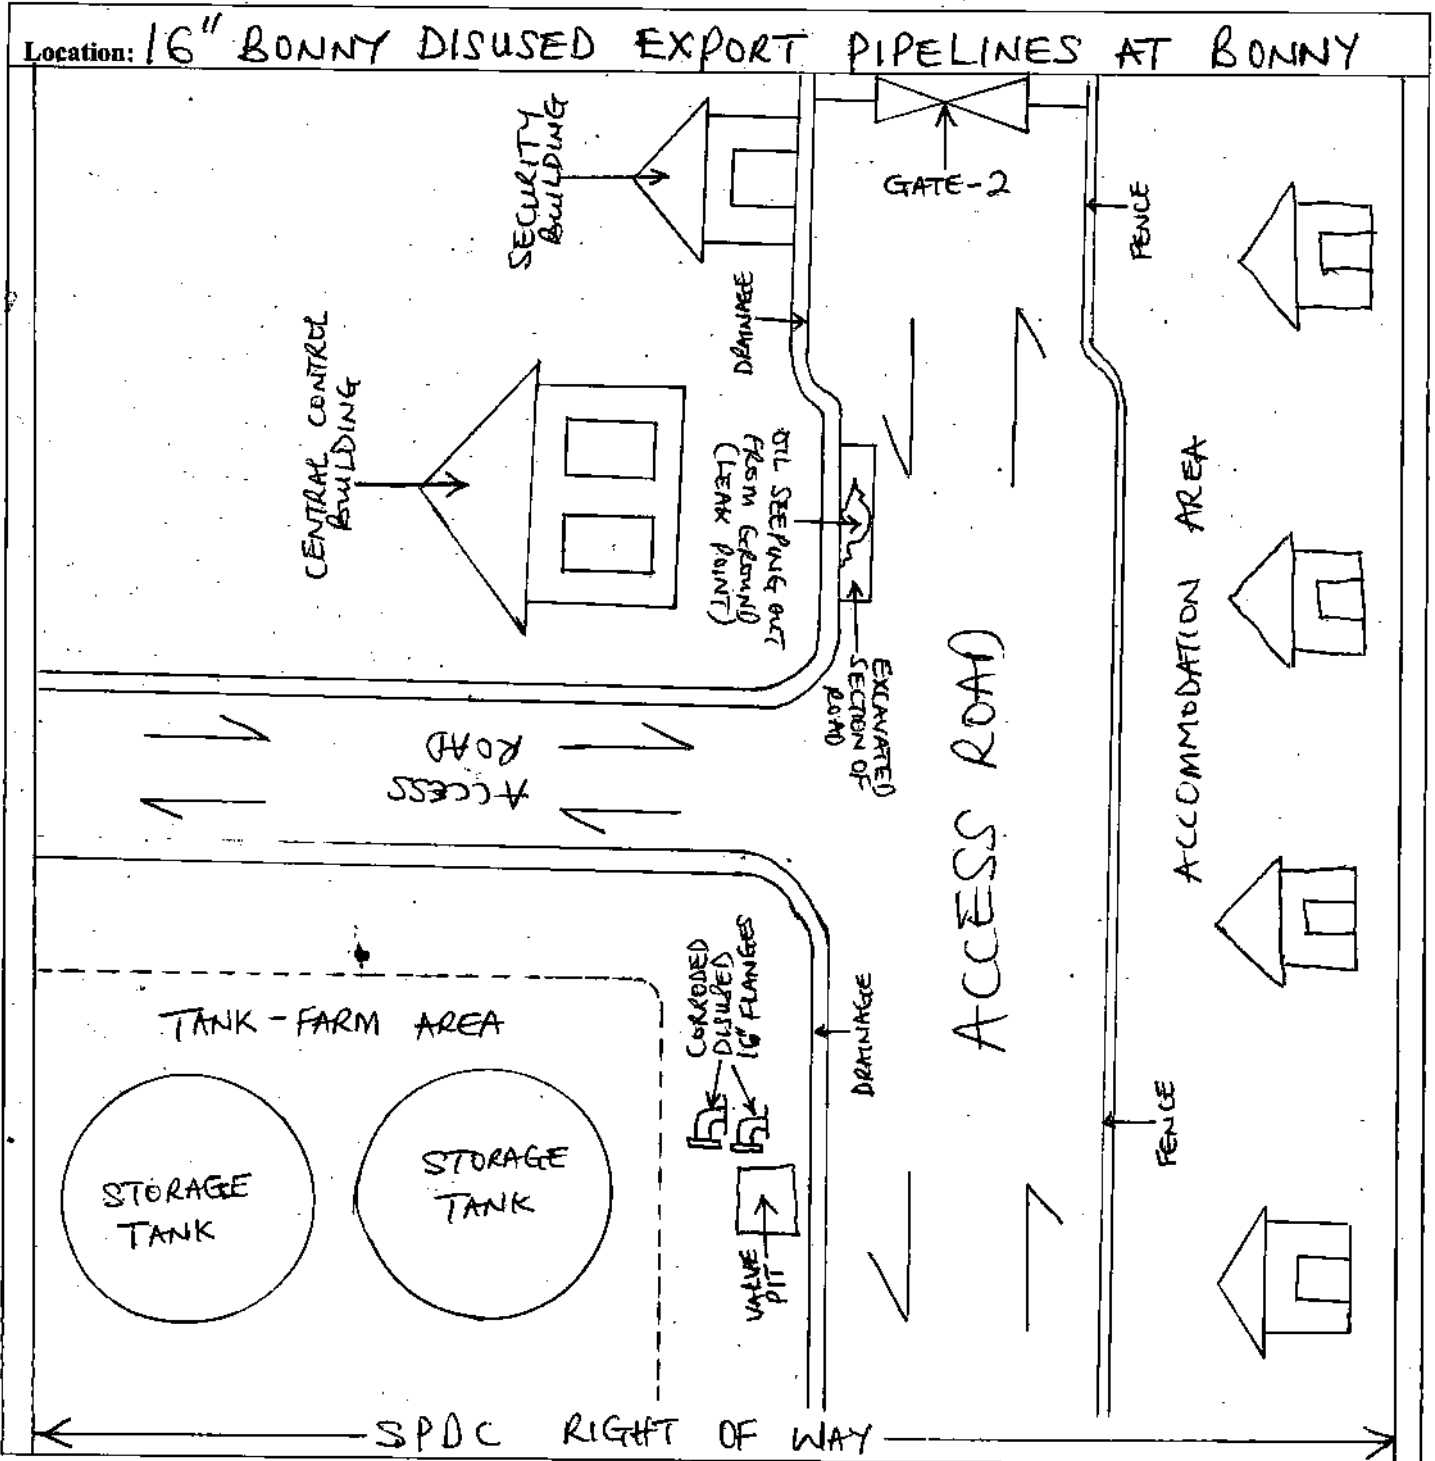 Location: 16" BONNY DISUSED EXPORT PIPELINES AT BONNY
SECURITY
BUILDING
GATE-2
FENCE
DRAINAGE
CENTRAL CONTROL
BUILDING
OIL SEEPING OUT
FROM GROUND
(LEAK POINT)
EXCAVATED
SECTION OF
ROAD
ACCESS ROAD
ACCOMMODATION AREA
ACCESS
ROAD
TANK-FARM AREA
CORRODED
DISUSED
16" FLANGES
DRAINAGE
STORAGE
TANK
STORAGE
TANK
VALVE
PIT
FENCE
SPDC RIGHT OF WAY